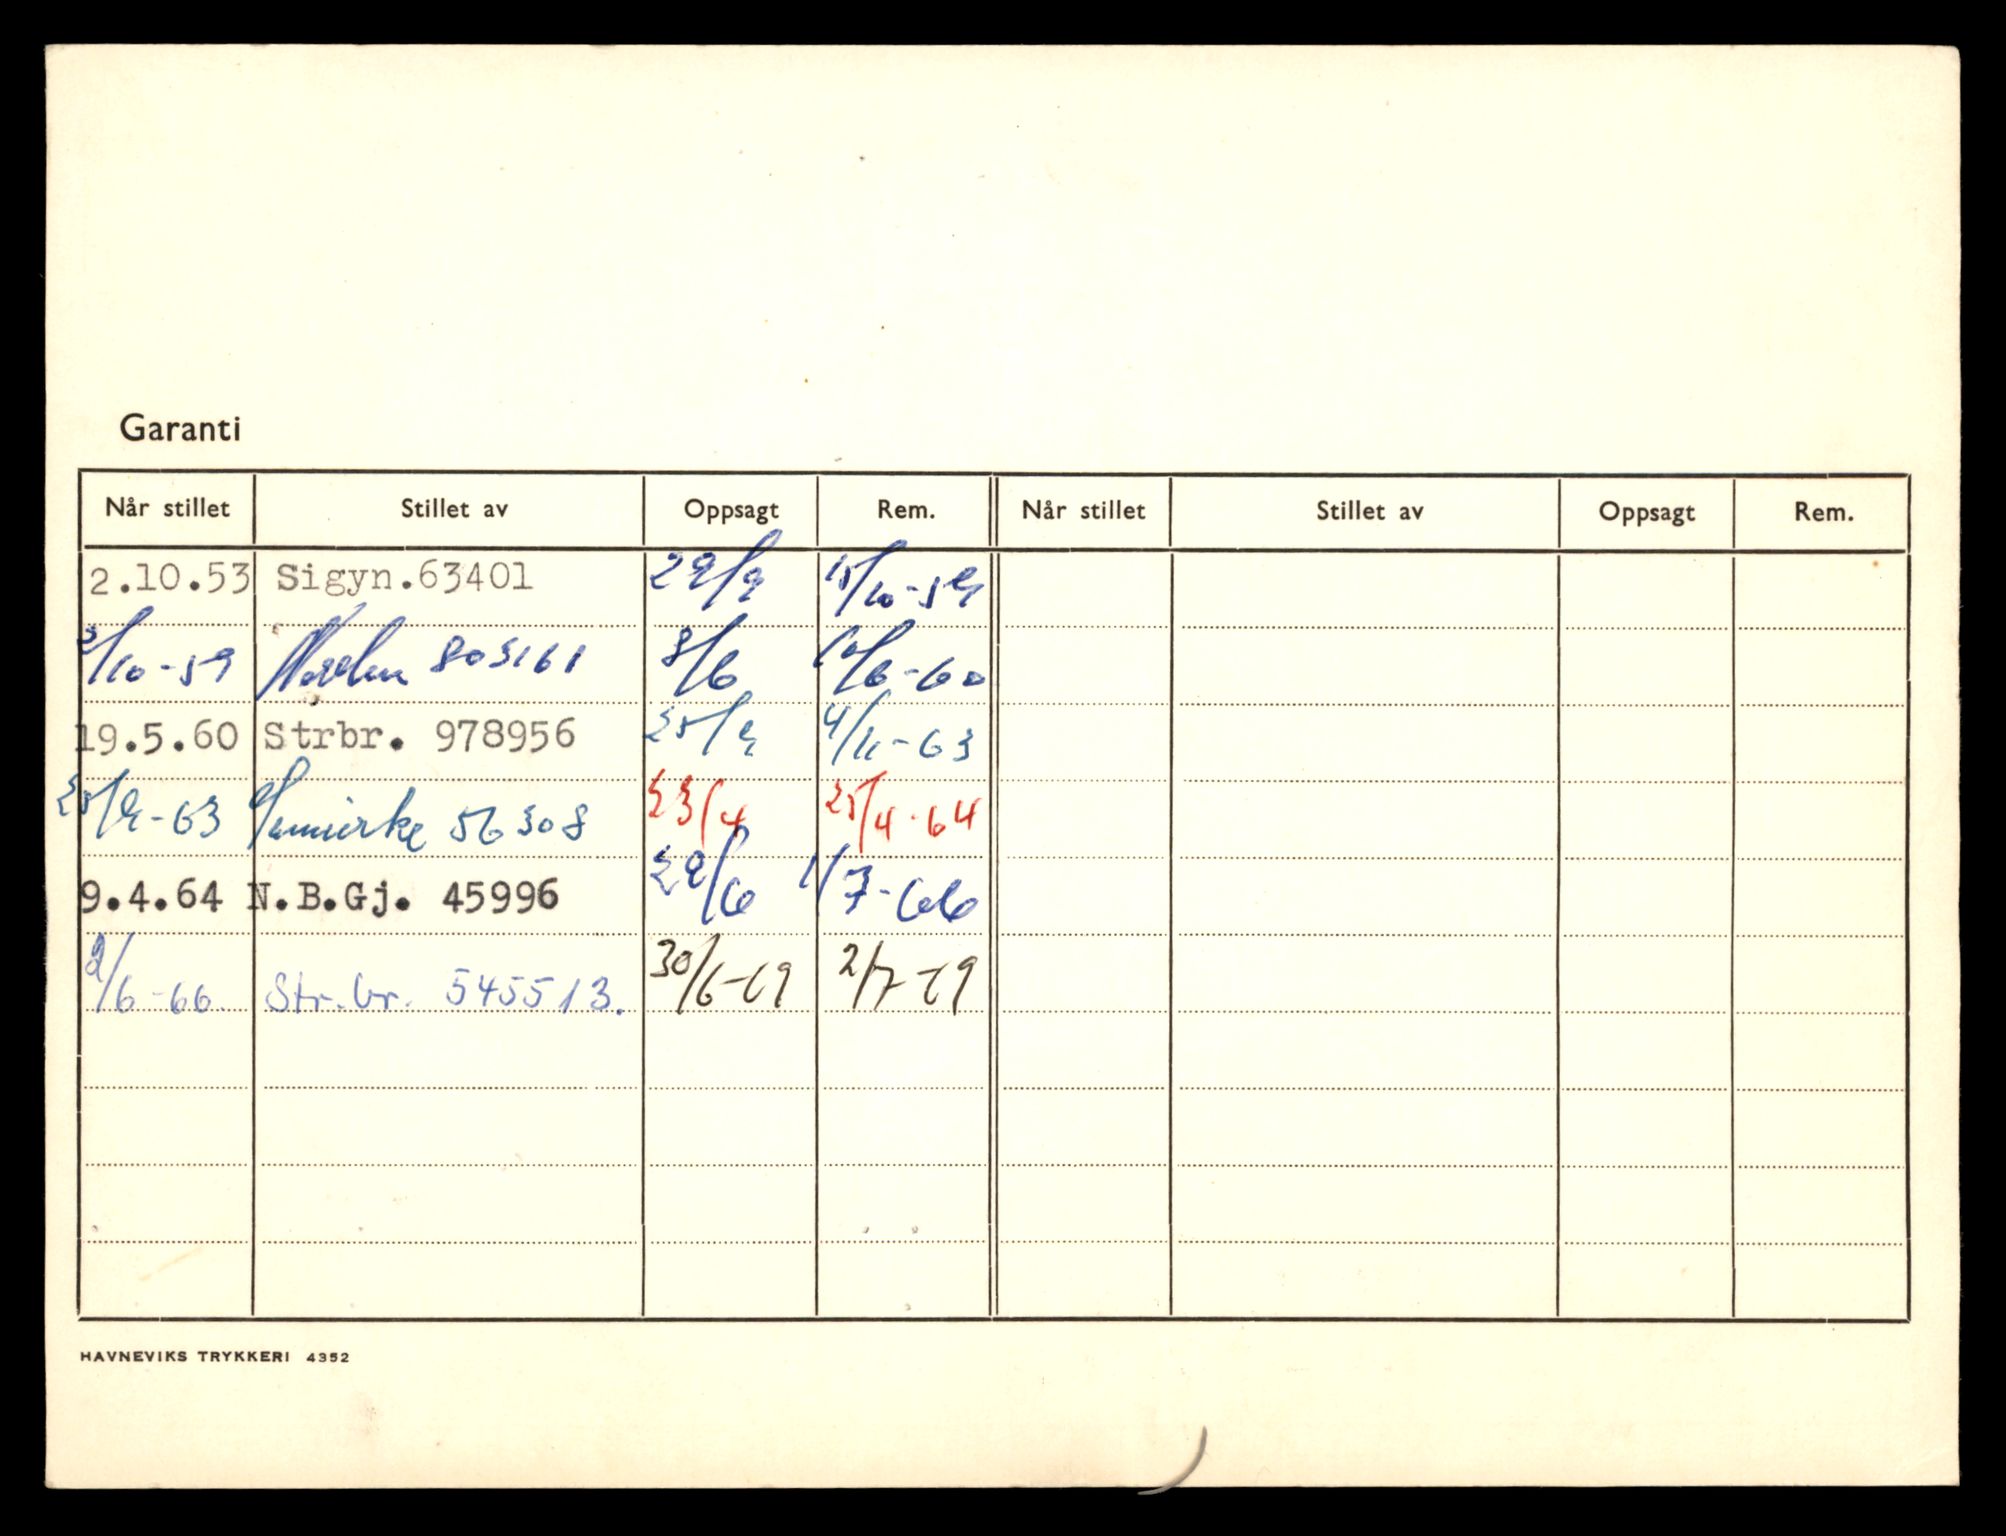 Garanti
Når stillet Stillet av Oppsagt Rem. Når stillet Stillet av Oppsagt Rem.
2.10.53 Sigyn.63401 29/9 15/10-59
3/10-59 803161 8/6 10/6-60
19.5.60 Strbr. 978956 25/9 4/11-63
25/9-63 56308 23/4 25/4-64
9.4.64 N.B.Gj. 45996 29/6 1/7-66
2/6-66 Str.br. 545513. 30/6-69 2/7-69
HAVNEVIKS TRYKKERI 4352